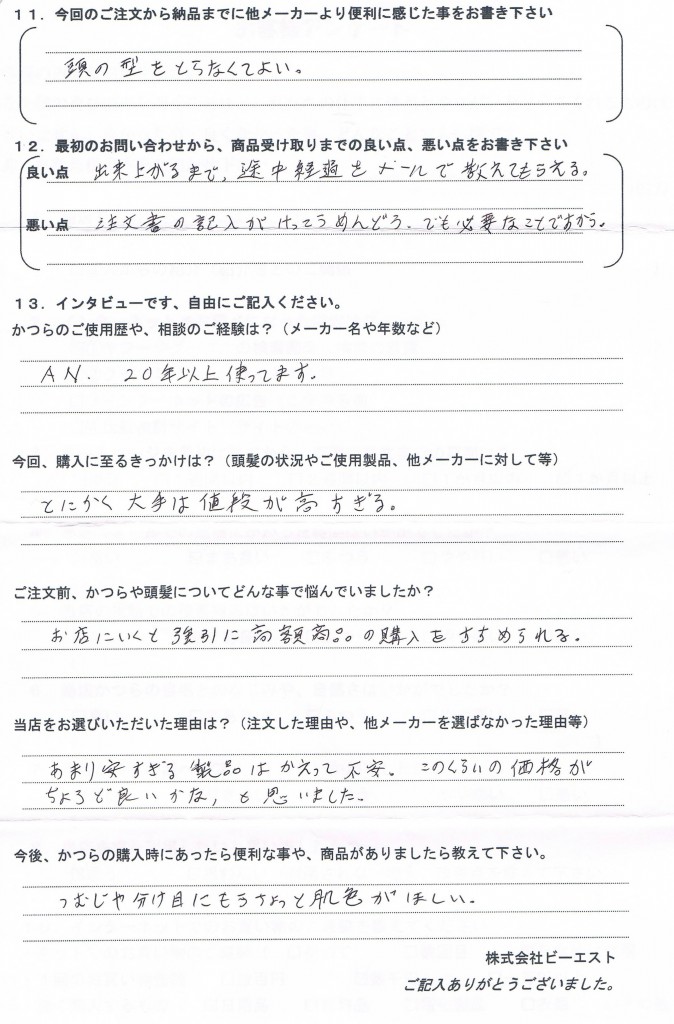 11．今回のご注文から納品までに他メーカーより便利に感じた事をお書き下さい
頭の型をとらなくてよい。
12．最初のお問い合わせから、商品受け取りまでの良い点、悪い点をお書き下さい
良い点　出来上がるまで、途中経過をメールで教えてもらえる。
悪い点　注文書の記入がけっこうめんどう、でも必要なことですから。
13．インタビューです、自由にご記入ください。
かつらのご使用歴や、相談のご経験は？（メーカー名や年数など）
AN.　20年以上使ってます。
今回、購入に至るきっかけは？（頭髪の状況やご使用製品、他メーカーに対して等）
とにかく大手は値段が高すぎる。
ご注文前、かつらや頭髪についてどんな事で悩んでいましたか？
お店にいくと強引に高額商品の購入をすすめられる。
当店をお選びいただいた理由は？（注文した理由や、他メーカーを選ばなかった理由等）
あまり安すぎる製品はかえって不安。このくらいの価格が
ちょうど良いかな，と思いました。
今後、かつらの購入時にあったら便利な事や、商品がありましたら教えて下さい。
つむじや分け目にもうちょっと肌色がほしい。
株式会社ビーエスト
ご記入ありがとうございました。